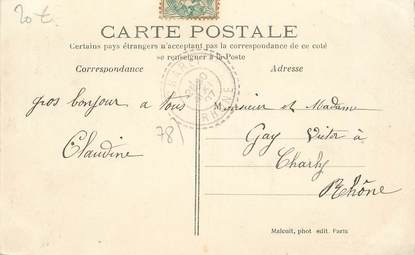 20 t.
CARTE POSTALE
Certains pays étrangers n'acceptant pas la correspondance de ce coté
se renseigner à la Poste
Correspondance
Adresse
gros bonjour a tous
Claudine
781
Monsieur et Madame
Gay Victor à
Charly
Rhône
RHÔNE
Malcuit, phot édit. Paris